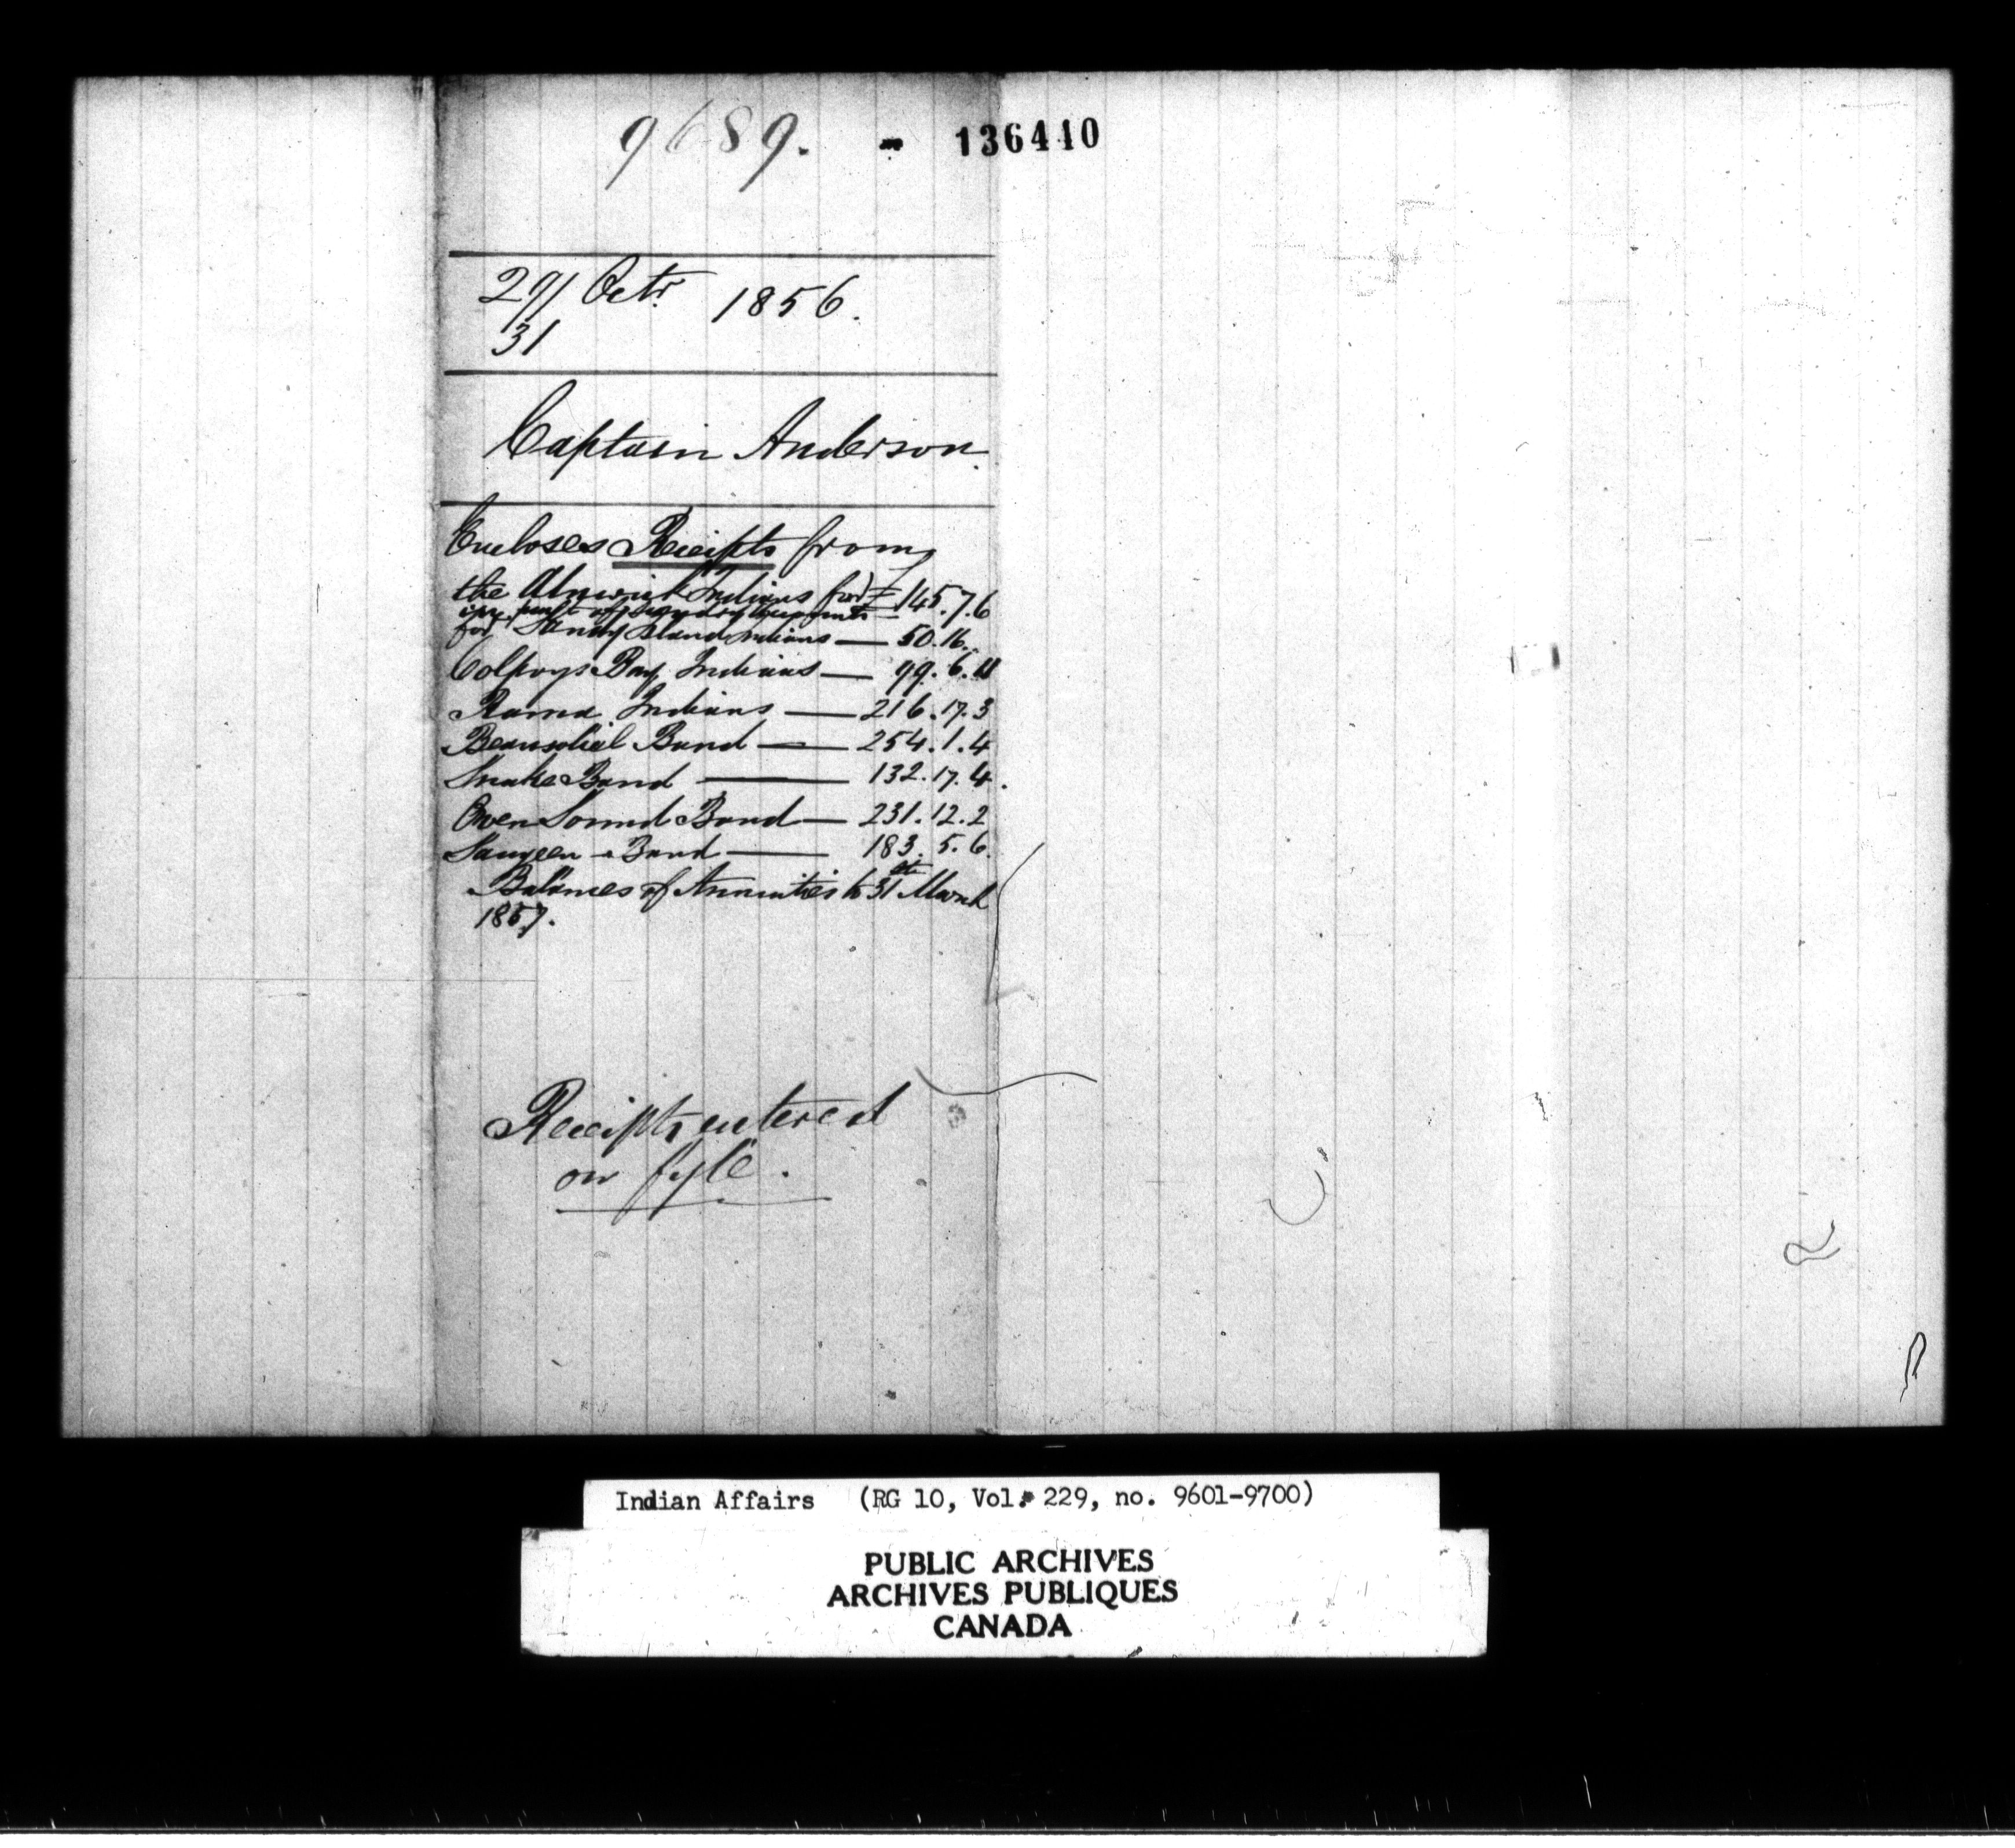 9689. - 136410
29/ Octr. 1856.
31
Captain Anderson.
Encloses Receipts from
the Alnwick Indians for £145.7.6
in of
for Sandy Island Indians — 50.16.
Colpoys Bay Indians — 99.6.11
Rama Indians — 216.17.3
Beausoliel Band — 254.1.4
Snake Band — 132.17.4.
Owen Sound Band — 231.12.2
Saugeen Band — 183.5.6.
Balances of Annuities to 31st March
1857.
Receipts entered
on fyle.
Indian Affairs (RG 10, Vol. 229, no. 9601-9700)
PUBLIC ARCHIVES
ARCHIVES PUBLIQUES
CANADA